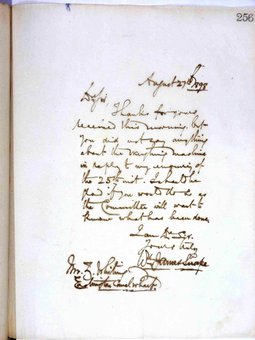 256
August 27th 1898
D/Sir,
Thanks for yours
received this morning but
you did not say anything
about the Weighing machine
in reply to my enquiry of
the inst. I shall be
glad if you would do so as
the Committee will want to
know what has been done
I am D/ Sir.
Yours truly
Wm James
Mr. J.
Canal Wharf